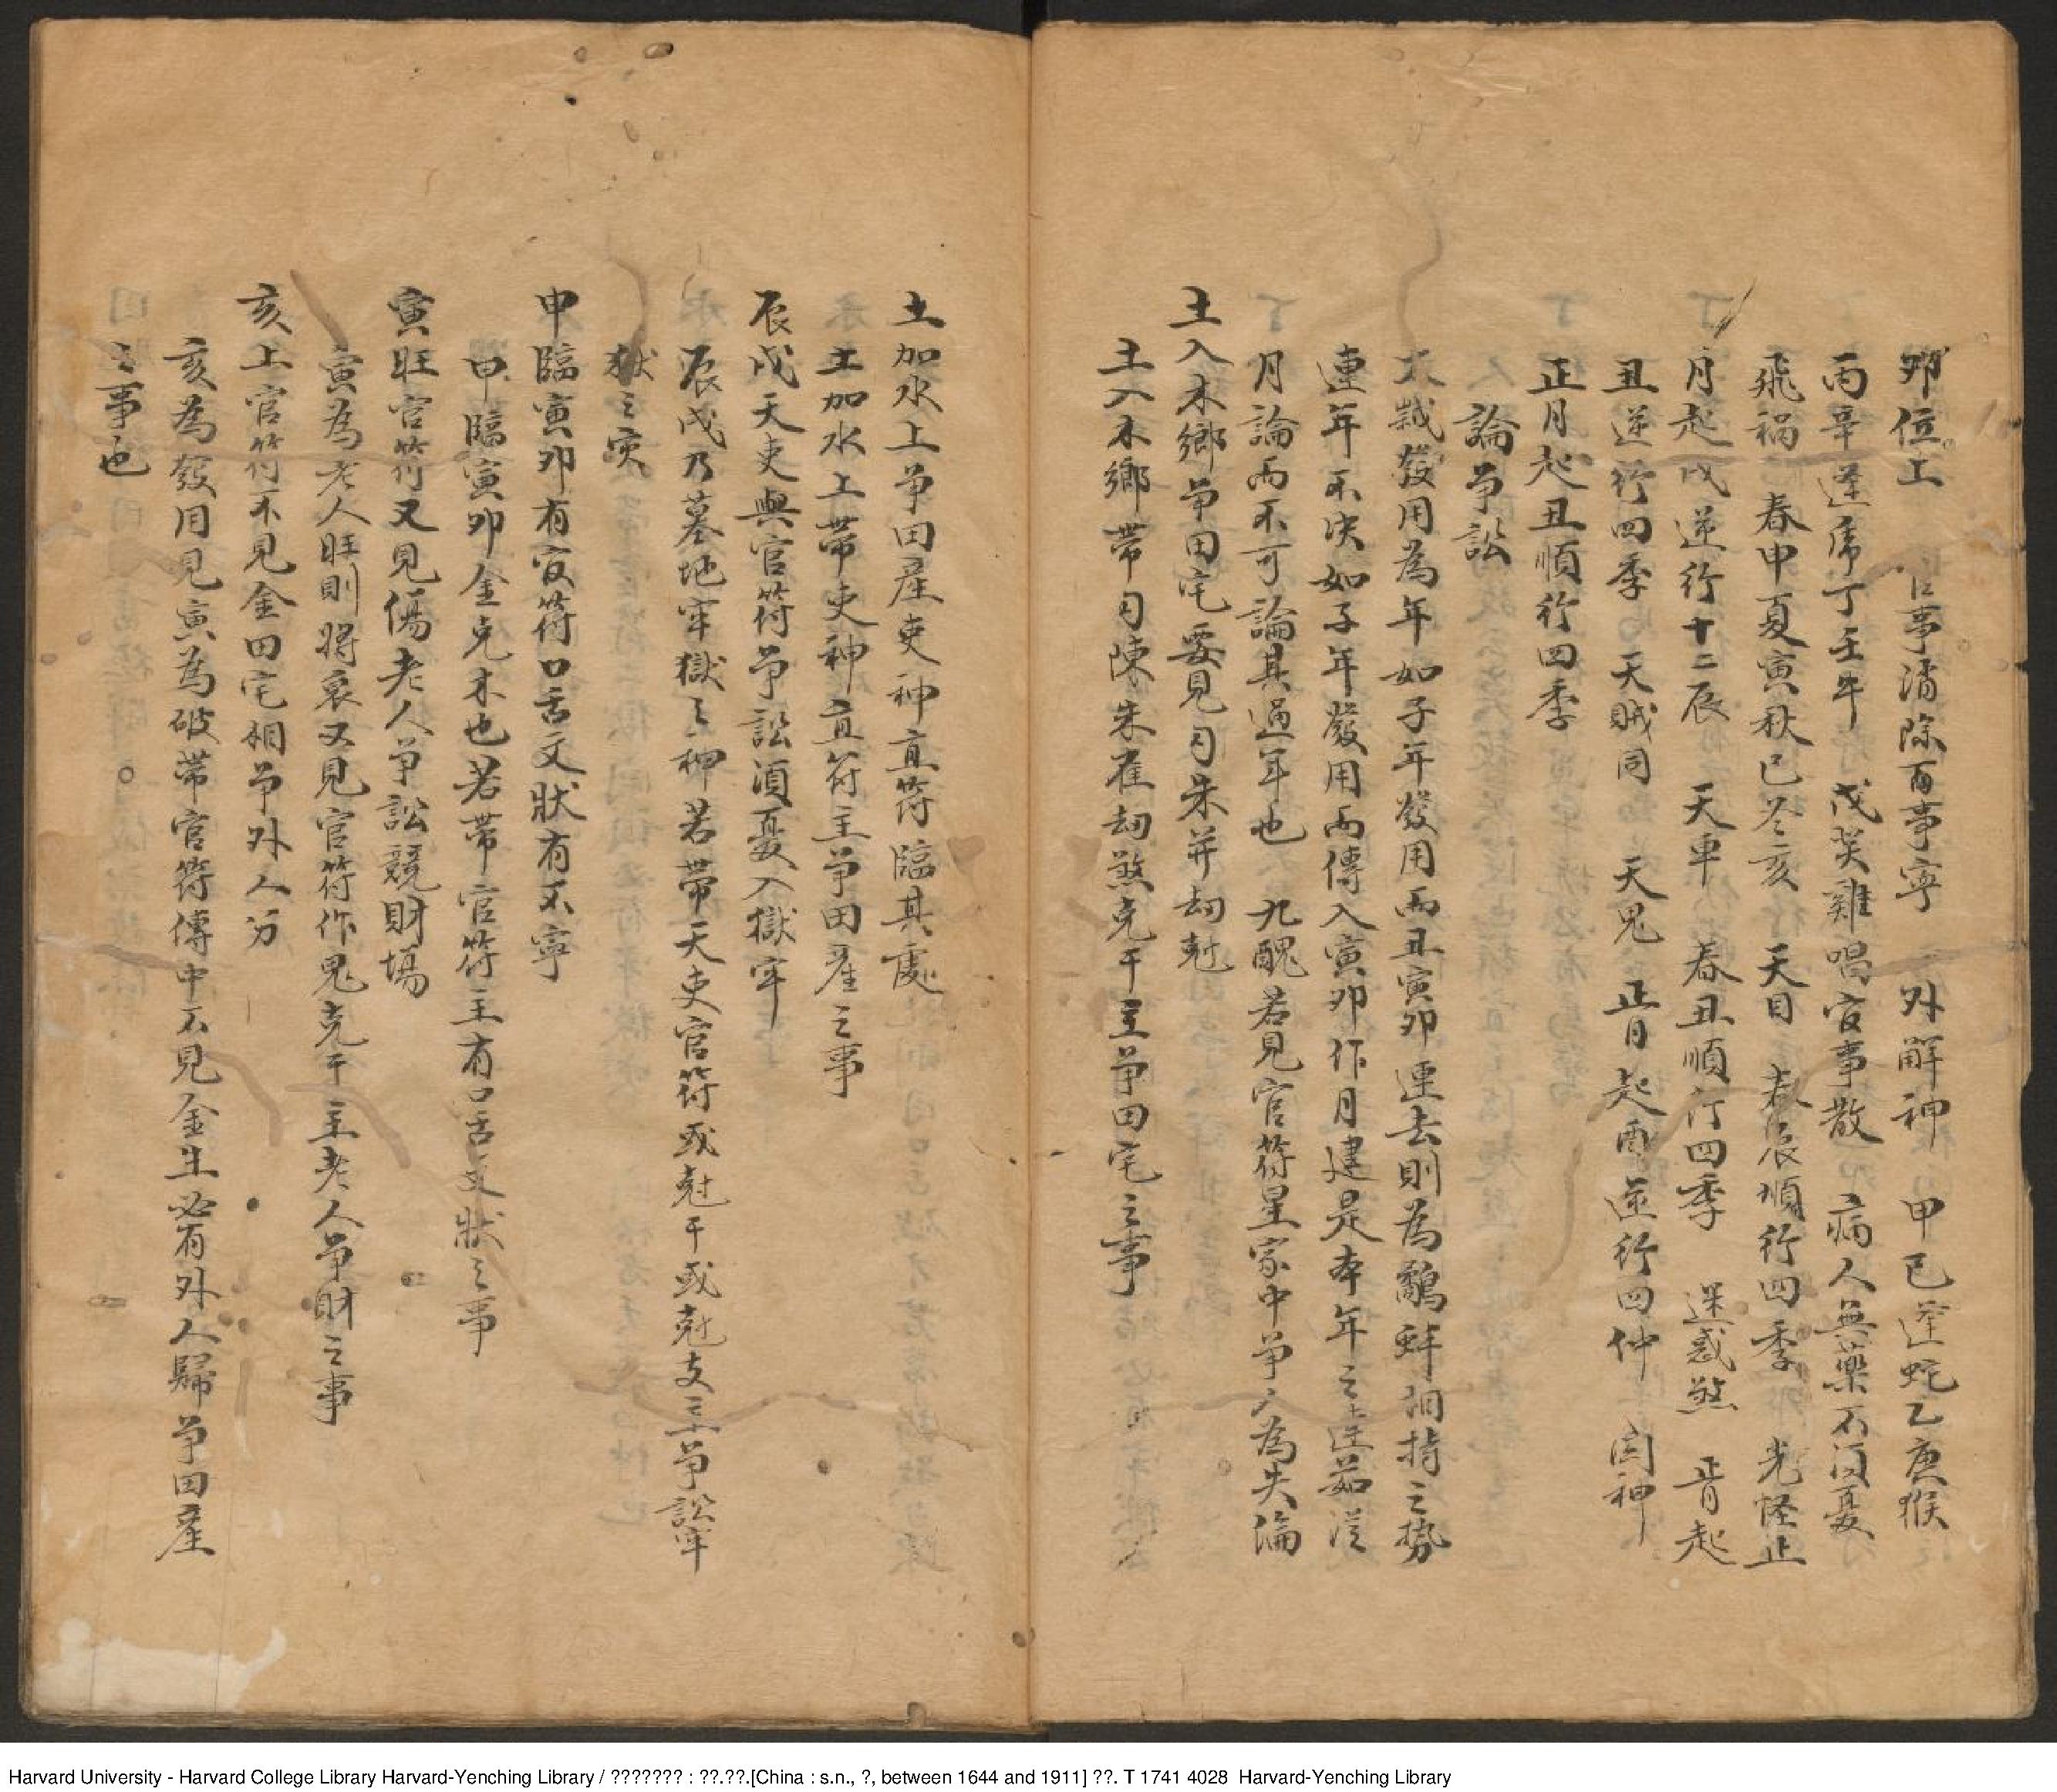 卯位上　占事消除百事寧　外解神　甲己逢蛇乙庚猴
丙辛逢虎丁壬牛　戊癸雞唱官事散　病人無藥不須憂
飛禍　春申夏寅秋巳冬亥　天目　春辰順行四季　光怪止
月起戌逆行十二辰　天車　春丑順行四季　迷惑煞　正月起
丑逆行四季　天賊同　天鬼　正月起酉逆行四仲　神
正月起丑順行四季
論爭訟
太歲發用為年如子年發用而丑寅卯連去則為鷸蚌相持之勢
連年不決如子年發用而傳入寅卯作月建是本年之連茹從
月論而不可論其過年也　九醜若見官符星家中爭人為失倫
土入木鄉爭田宅要見勾朱并劫尅
土入木鄉帶勾陳朱雀劫煞克干主爭田宅之事
土加水上爭田產吏神直符臨其處
土加水上帶吏神直符主爭田產之事
辰戌天吏與官符爭訟須憂入獄牢
辰戌乃墓地牢獄之神若帶天吏官符或尅干或尅支主爭訟牢
獄之灾
申臨寅卯有官符口舌文狀有不寧
申臨寅卯金克木也若帶官符主有口舌文狀之事
寅旺官符又見傷老人爭訟競財場
寅為老人旺則將衰又見官符作鬼克干主老人爭財之事
亥上官符不見金田宅相爭外人分
亥為發用見寅為破帶官符傳中不見金生必有外人歸爭田產
之事也
Harvard University - Harvard College Library Harvard-Yenching Library / ??????? : ??.??.[China : s.n., ?, between 1644 and 1911] ??. T 1741 4028 Harvard-Yenching Library